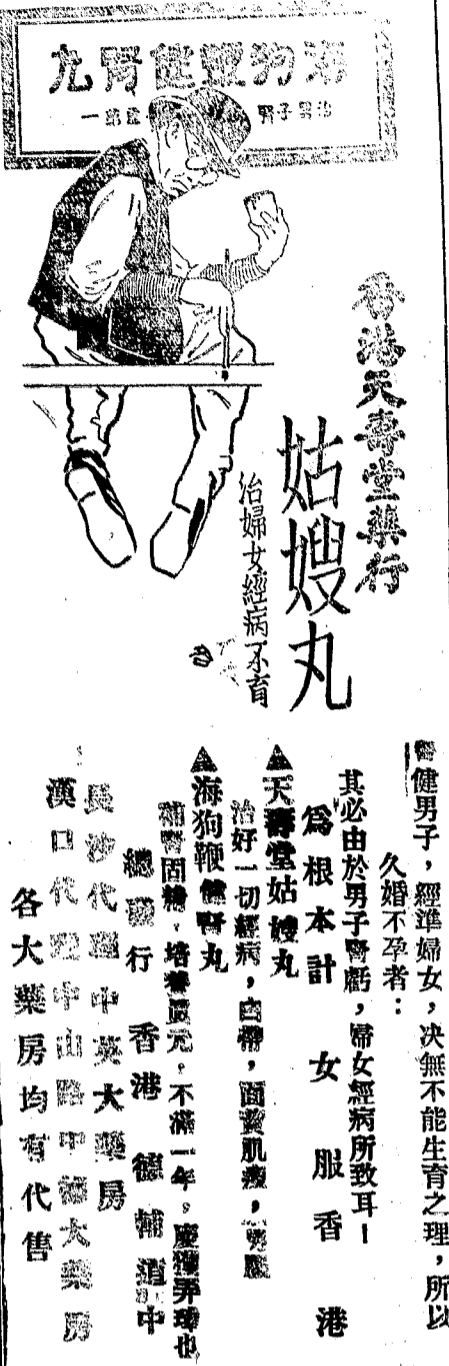 海狗鞭健腎丸
治男子腎 第一
香港天壽堂藥行
姑嫂丸
治婦女經病不育
腎健男子，經準婦女，决無不能生育之理，所以
久婚不孕者：
其必由於男子腎虧，婦女經病所致耳！
爲根本計 女服香港
▲天壽堂姑嫂丸
治好一切經病，白帶，面黃肌瘦，
▲海狗鞭健腎丸
補腎固精，培養元，不滿一年。慶獲弄璋也
總行 香港德輔道中
長沙代理中英大藥房
漢口代理中山路中德大藥房
各大藥房均有代售